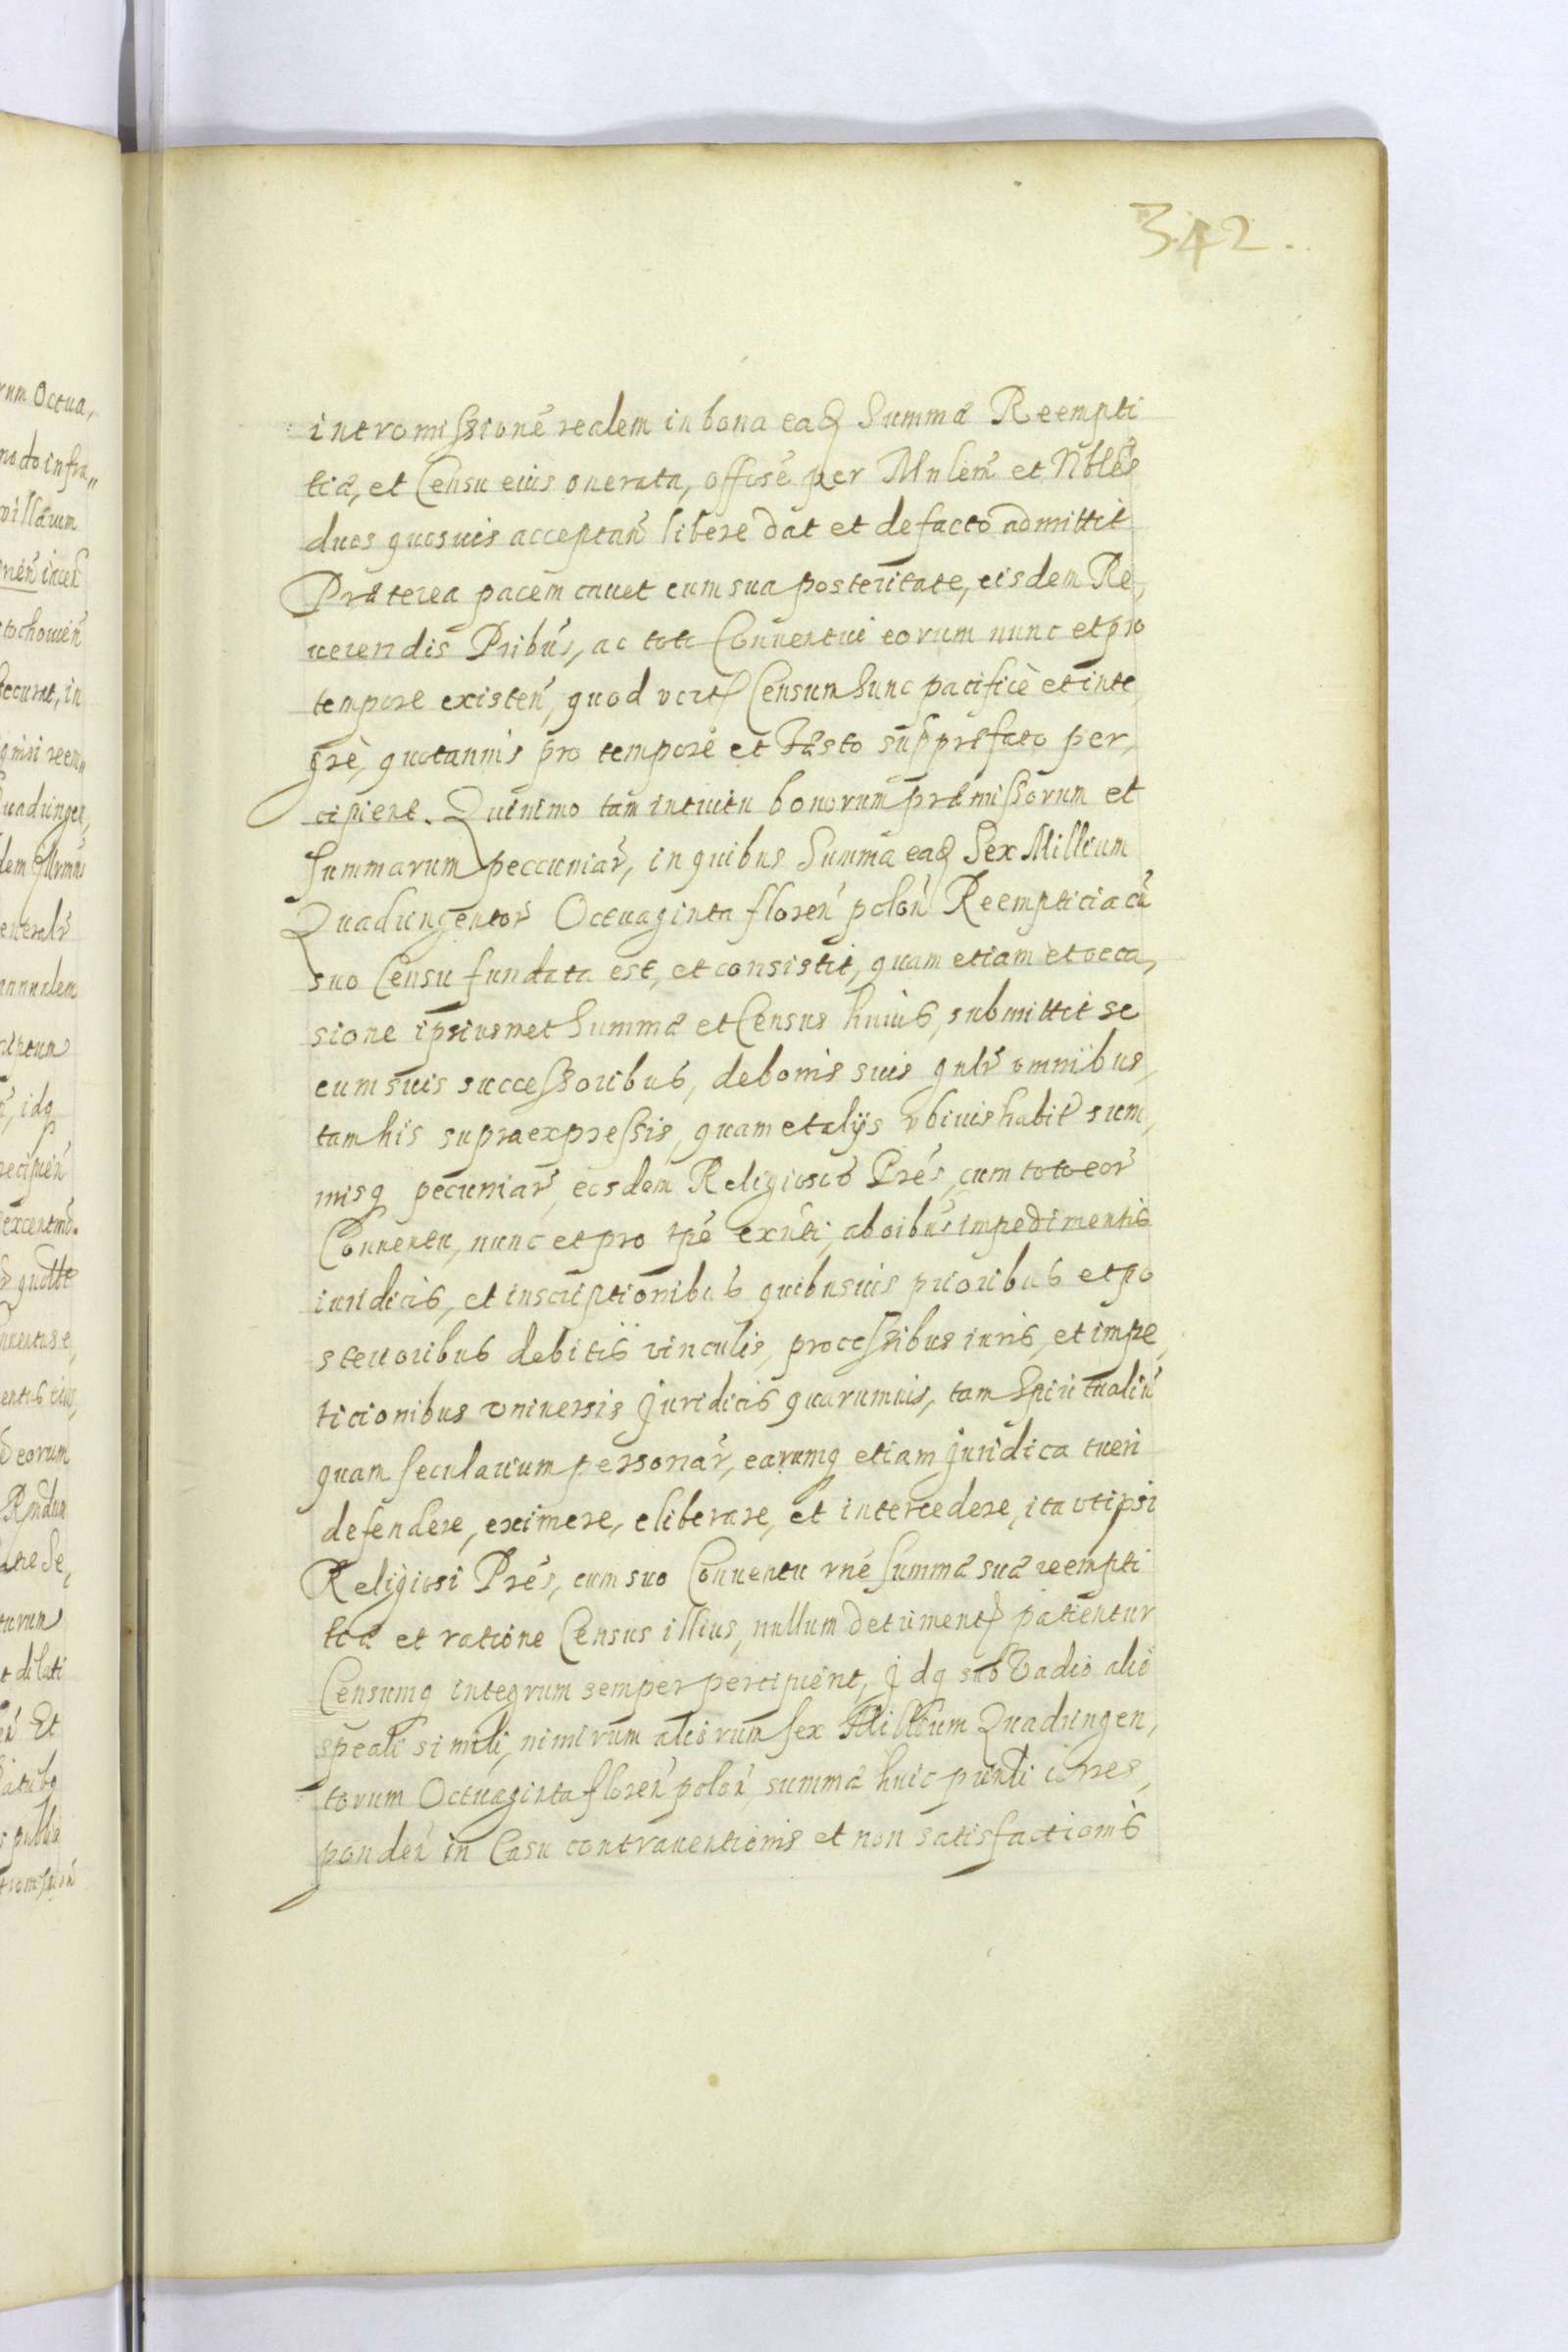 342.
intromissionē realem in bona eaq Summæ Reempti
tiæ, et Censu eius onerata, offōsē per Mnlem̄ et Nōbles
duos quosuis acceptan̄ libere dat et de facto admittit
Præterea pacem cauet cum sua posteritate, eisdem Re,
uerendis Pribus̄, ac toti Conuentui eorum nunc et pro
tempore existen̄, quod Censum hunc pacificè et inte,
grè, quotannis pro tempore et Fæsto sup præfato per,
cipient. Quinimo tam intuitu bonorum præmissorum et
summarum peccuniar̄, in quibus Summa eaq Sex Millium
Quadringentor̄ Octuaginta floren̄ polon̄ Reempticia cū
suo Censu fundata est, et consistit, quam etiam et occa,
sione ipsiusmet Summæ et Census huius, submittit se
cum suis successoribus, de bonis suis gnlr̄ omnibus,
tam his supraexpressis, quam et alijs vbiuis habit̄ sum,
misq pecuniar̄, eosdem Religiosos Prēs, cum toto eor̄
Conuentu, nunc et pro tpē exn̄ti, ab oibus̄ impedimentis
iuridicis, et inscriptionibus quibusuis prioribus et po
sterioribus debitis vinculis, processibus iuris, et impe,
ticionibus vniuersis Juridicis quarumuis, tam Spiritualiū
quam secularium personar̄, earumq etiam juridica tueri
defendere, eximere, eliberare, et intercedere, ita vt ipsi
Religiosi Prēs, cum suo Conuentu rnē summæ suæ reempti
tiæ et ratione Census illius, nullum detriment̄ patientur
Censumq integrum semper percipient, Jdq sub Vadio alio
speāli simili, nimirum aliorum sex Millium Quadringen,
torum Octuaginta floren̄ polon̄ summæ huic pn̄nti corres,
ponden̄ in Casu contrauentionis et non satisfactionis